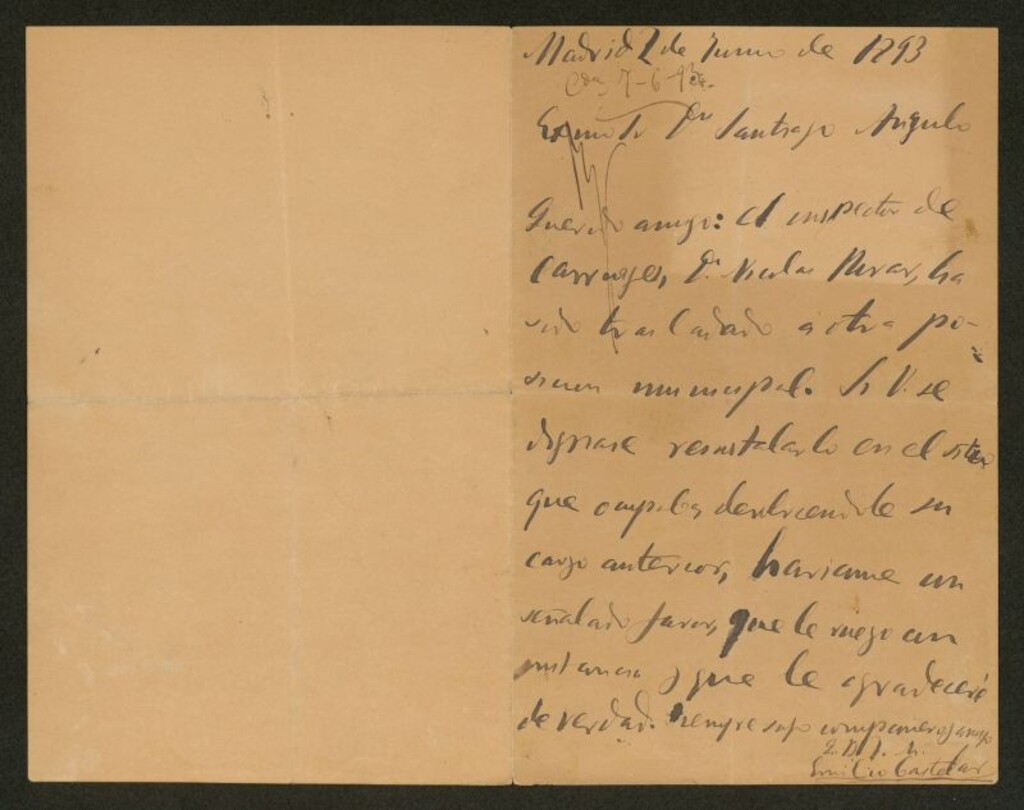 Madrid 2 de Junio de 1893
7-6-93
Exmo Sr Dn Santiago Angulo
Querido amigo: el inspector de
carruages, Dn Nicolas Rivas, ha
sido trasladado a otra po-
sicion municipal. Si V. se
dignase reinstalarlo en el sitio
que ocupaba devolviendole su
cargo anterior, hariame un
señalado favor, que le ruego con
instancia y que le agradeceré
de verdad. Siempre suyo compañero y amigo
Q. B. S. M.
Emilio Castelar